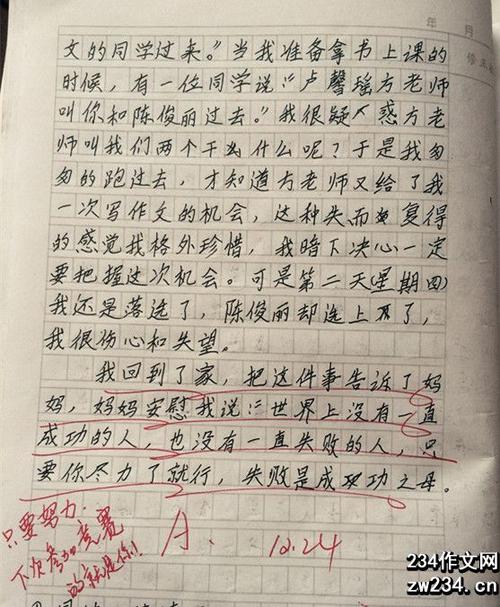 年 月
文的同学过来。”当我准备拿书上课的
时候，有一位同学说：“卢馨瑶方老师
叫你和陈俊丽过去。”我很疑惑方老
师叫我们两个干什么呢？于是我匆
匆的跑过去，才知道方老师又给了我
一次写作文的机会，这种失而复得
的感觉我格外珍惜，我暗下决心一定
要把握这次机会。可是第二天(星期四)
我还是落选了，陈俊丽却选上了，
我很伤心和失望。
我回到了家，把这件事告诉了妈
妈，妈妈安慰我说：“世界上没有一直
成功的人，也没有一直失败的人，只
要你尽力了就行，失败是成功之母。
只要努力.
下次参加竞赛
的就是你!
A. 12.24
234作文网
zw234.cn